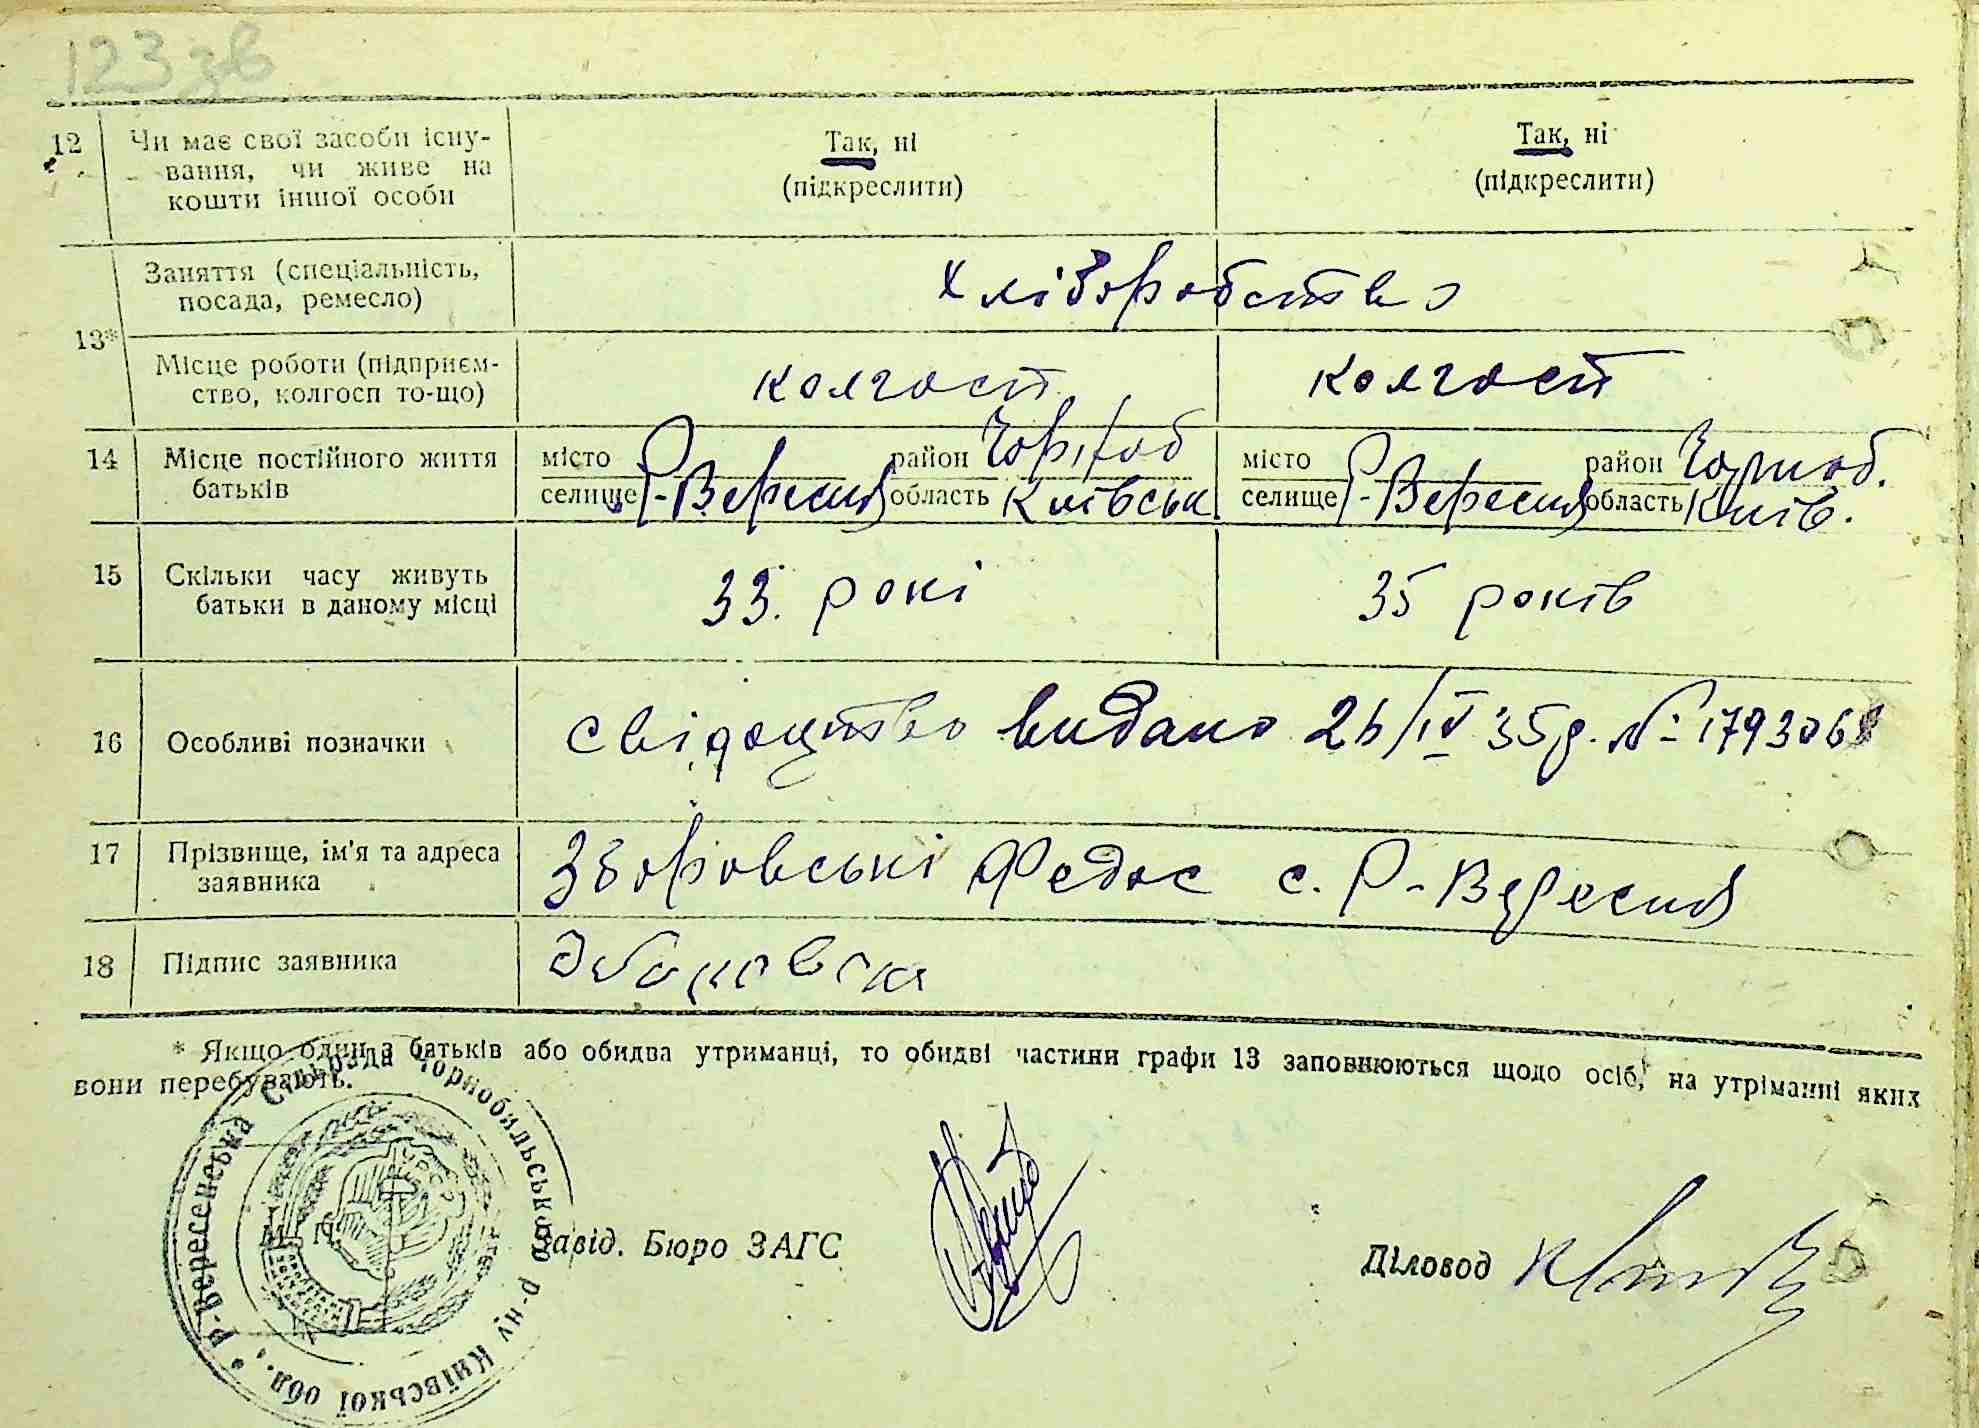 123 зв
12 Чи має свої засоби існу- Так, ні Так, ні
вання, чи живе на (підкреслити) (підкреслити)
кошти іншої особи
Заняття (спеціальність, Хліборобство
посада, ремесло)
13*
Місце роботи (підприєм- колгосп колгосп
ство, колгосп то-що)
14 Місце постійного життя місто Р-Вересня район Чорноб місто Р-Вересня район Чорноб.
батьків селище область Київськ селище область Київ.
15 Скільки часу живуть 33. рокі 35 років
батьки в даному місці
16 Особливі позначки свідоцтво видано 26/IV 35р. №
17 Прізвище, ім'я та адреса Зборовські Федос с. Р-Вересня
заявника
18 Підпис заявника
* Якщо один з батьків або обидва утриманці, то обидві частини графи 13 заповнюються щодо осіб, на утріманні яких
вони перебувають.
Р-Вересенська Сільрада Чорнобильського р-ну Київської обл.
УРСР
Завід. Бюро ЗАГС Діловод